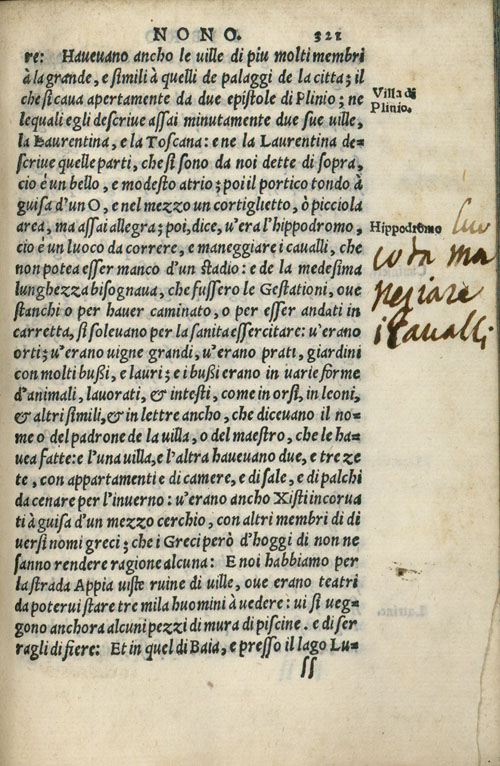 NONO. 321
re: Haveuano ancho le uille di piu molti membri
à la grande, e simili à quelli de palaggi de la citta; il
che si caua apertamente da due epistole di Plinio; ne
Villa di
Plinio.
lequali egli descriue assai minutamente due sue uille,
la Laurentina, e la Toscana: e ne la Laurentina de-
scriue quelle parti, che si sono da noi dette di sopra,
cio è un bello, e modesto atrio; poi il portico tondo à
guisa d'un O, e nel mezzo un cortiglietto, ò picciola
area, ma assai allegra; poi, dice, u'era l'hippodromo,
Hippodromo luo
co da ma
negiare
i Cavalli
cio è un luoco da correre, e maneggiare i caualli, che
non potea esser manco d'un stadio: e de la medesima
lunghezza bisognaua, che fussero le Gestationi, oue
stanchi o per hauer caminato, o per esser andati in
carretta, si soleuano per la sanita essercitare: u'erano
orti; u'erano uigne grandi, u'erano prati, giardini
con molti bußi, e lauri; e i bußi erano in uarie forme
d'animali, lauorati, & intesti, come in orsi, in leoni,
& altri simili, & in lettre ancho, che diceuano il no-
me o del padrone de la uilla, o del maestro, che le ha-
uea fatte: e l'una uilla, e l'altra haueuano due, e tre ze
te, con appartamenti e di camere, e di sale, e di palchi
da cenare per l'inuerno: u'erano ancho Xisti incorua
ti à guisa d'un mezzo cerchio, con altri membri di di
uersi nomi greci; che i Greci però d'hoggi di non ne
sanno rendere ragione alcuna: E noi habbiamo per
la strada Appia uiste ruine di uille, oue erano teatri
da poterui stare tre mila huomini à uedere: ui si ueg-
gono anchora alcuni pezzi di mura di piscine. e di ser
ragli di fiere: Et in quel di Baia, e presso il lago Lu-
ss